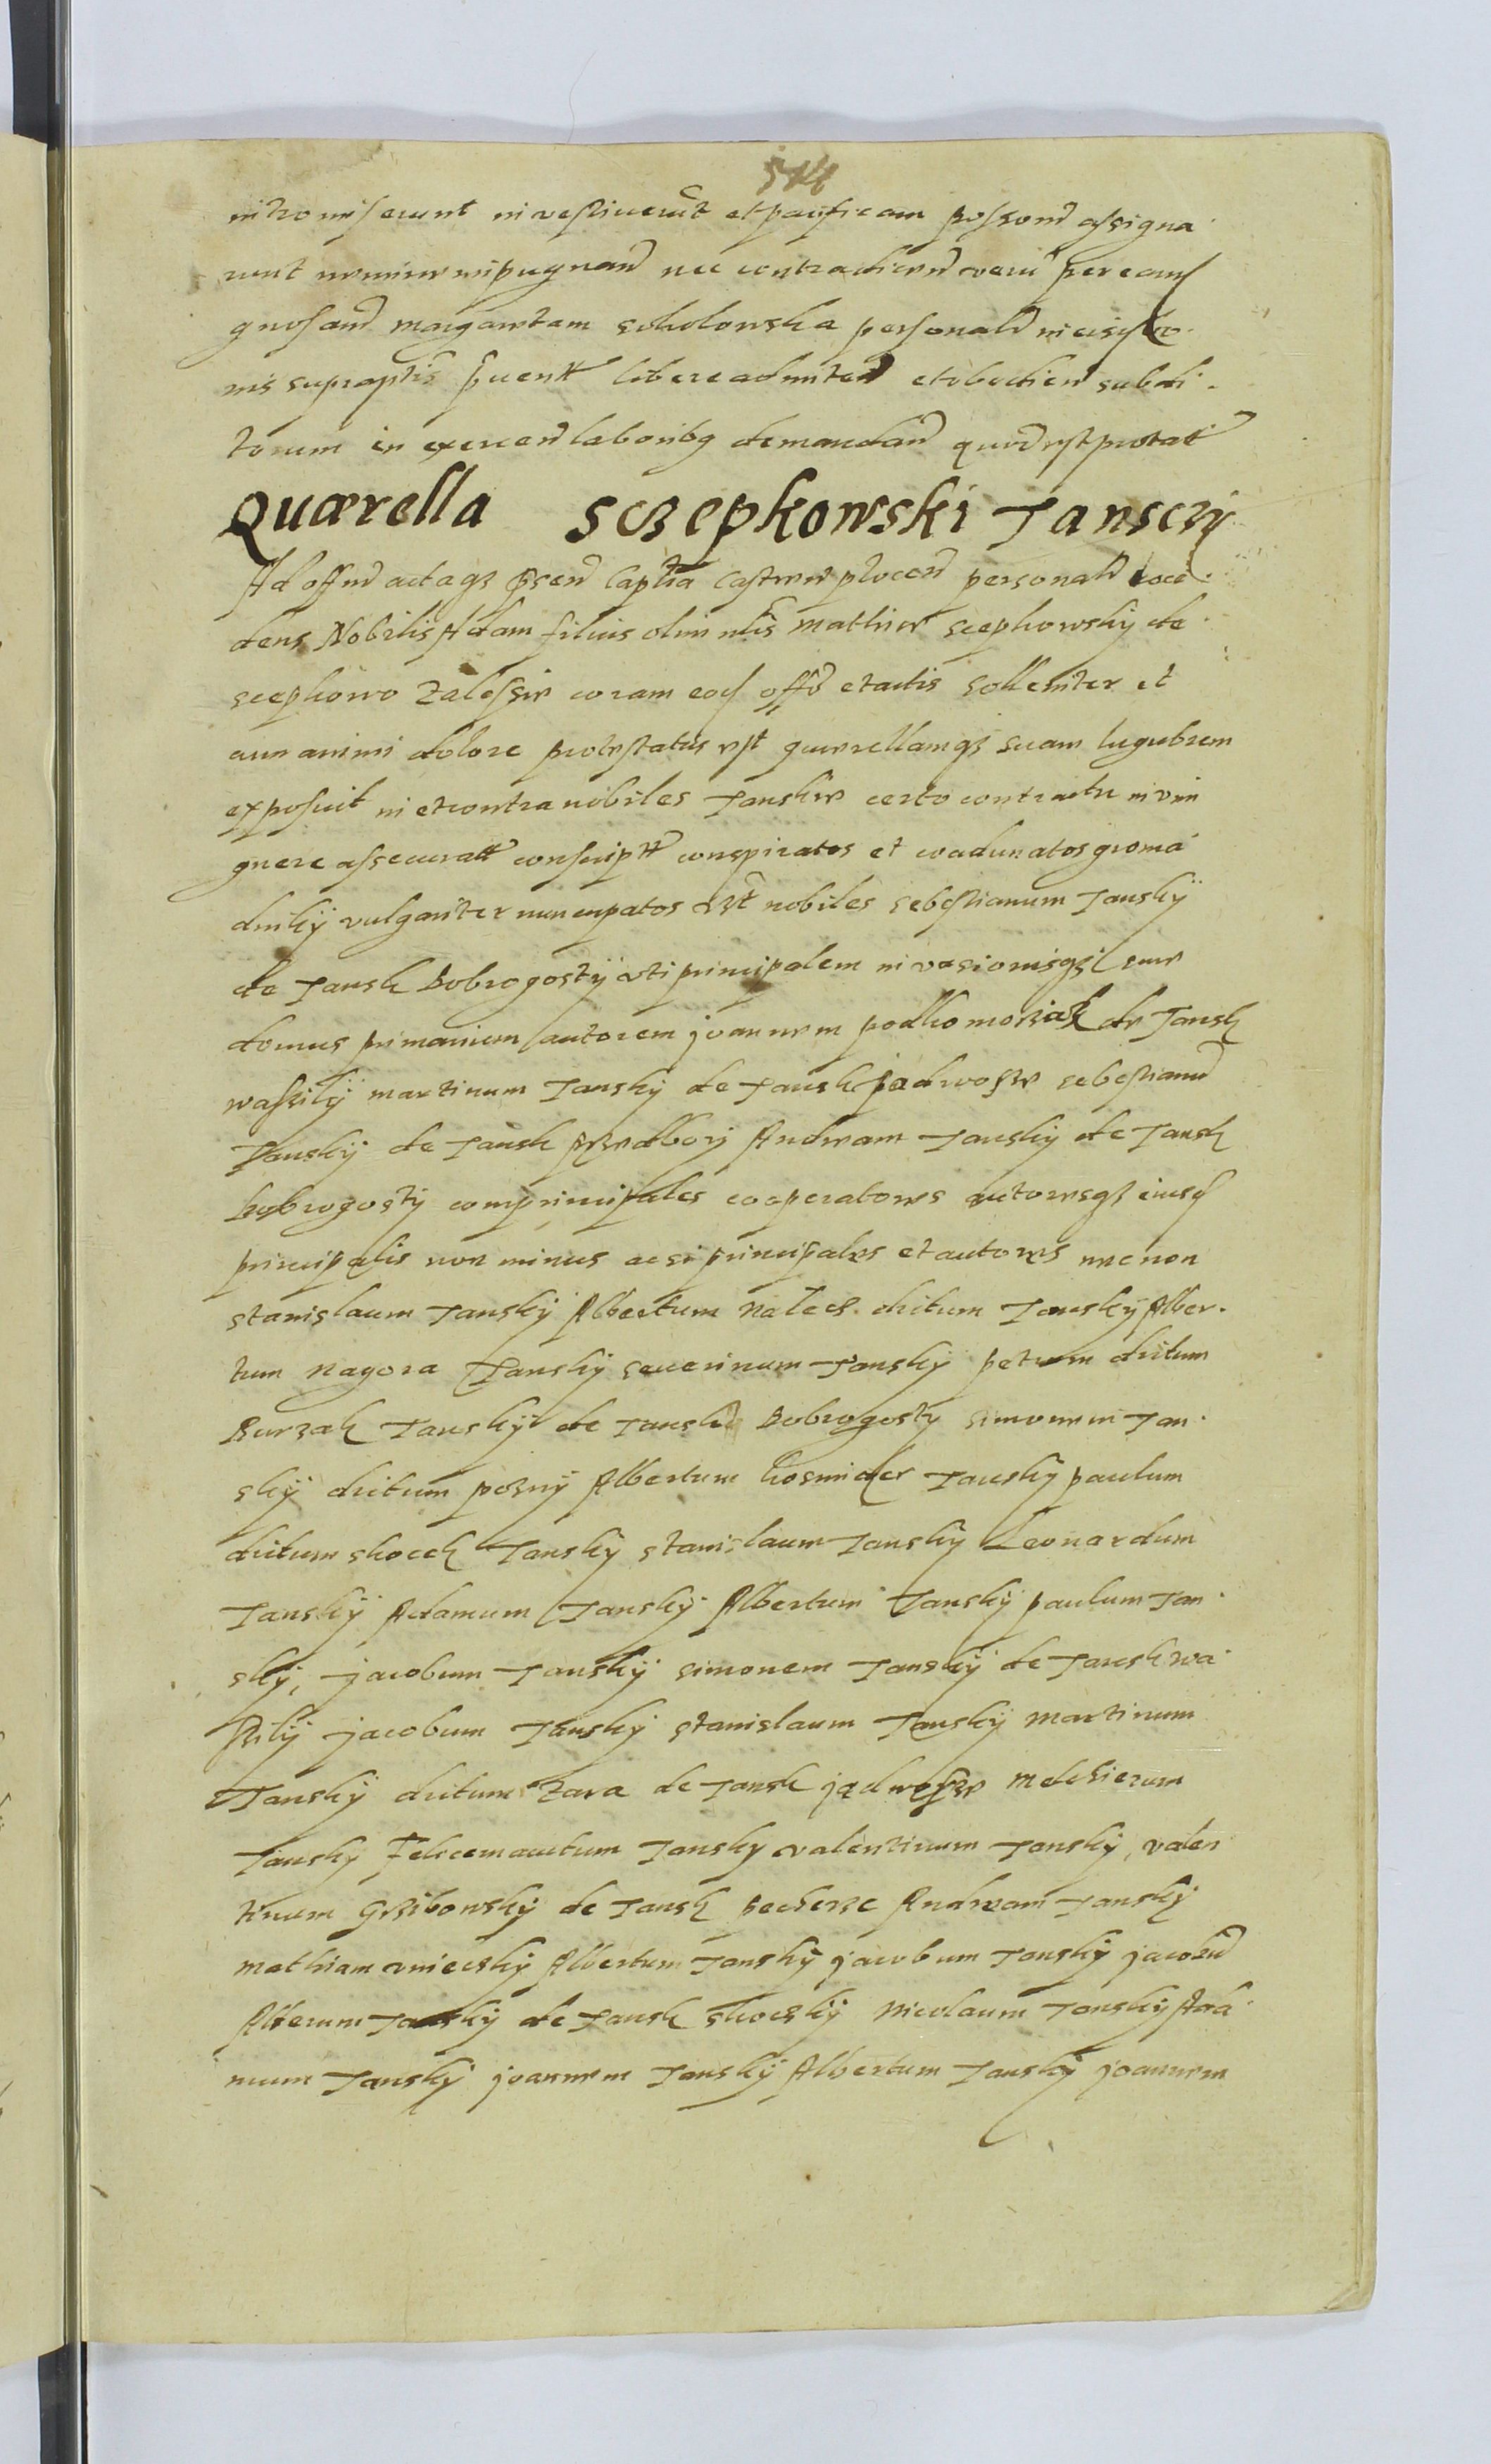 intromiserunt investiverūt et pacificam possoné assigna
runt nemine inpugnand nec contradicend
gnosand Margaretam Sokolowska personald in eisdem
nis supraptis libere admittend et obedien subdi
torum in exercend laboribg demandand quod est protat
Quærella Sczepkowski Tansczy
Ad offm actagz psen Captia Castren plocen personalr
dens Nobilis Adam filius olim nlis Mathiæ Scepkowsky de
Scepkowo Zalessie coram eod offo et actis Sollemter et
cum animi dolore protestatus est querellamgz suam lugubrem
exposuit in et contra nobiles Tanskie certo contractu
conspiratos et coadunatos groma
dniky vulgariter nuncupatos nobiles Sebestianum Tansky
de Tansk Dobrogosty uti principalem invasionisgz suæ
domus primarium autorem joannem podkomorzak de Tansk
waszily martinum Tansky de Tansk jadwosze sebestianū
Tansky de Tansk Przedbory Andream Tansky de Tansk
Dobrogosty comprincipales cooperatores autoresgz eiusd
principalis non minus ac si principales et autores nec non
stanislaum Tansky Albertum Natecz dictum Tansky Alber
tum Nagora Tansky severinum Tansky petrum dictum
Burzak Tansky de Tansk Dobrogosty simonem Tan
sky dictum pozny Albertum kosmider Tansky paulum
dictum skocek Tansky stanislaum Tansky Leonardum
Tansky Adamum Tansky Albertum Tansky paulum Tan
sky, jacobum Tansky simonem Tansky de Tansk wa
szily jacobum Tansky stanislaum Tansky martinum
Tansky dictum Zara de Tansk jadwosze Melchierum
Tansky Felicem Tansky valentinum Tansky, valen
tinum Grzibowsky de Tansk pecherze Andream Tansky
Mathiam Albertum Tansky jacobum Tansky jacobū
Alterum Tansky de Tansk skocsky Nicolaum Tansky Ada
mum Tansky joannem Tansky Albertum Tansky joannem